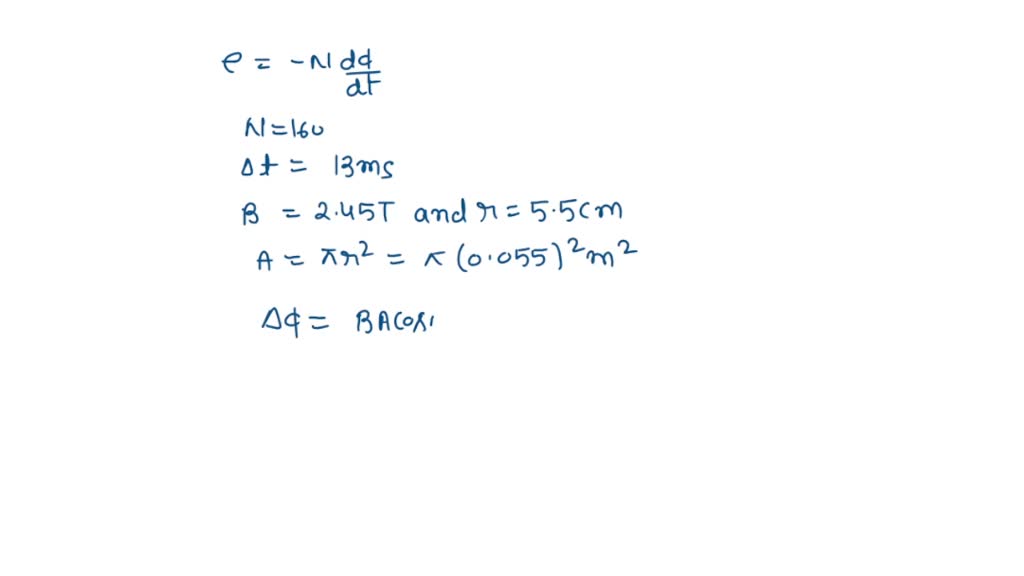 e = -N dφ/dt
N = 160
Δt = 13ms
B = 2.45T and r = 5.5cm
A = πr² = π(0.055)²m²
Δφ = BAcos